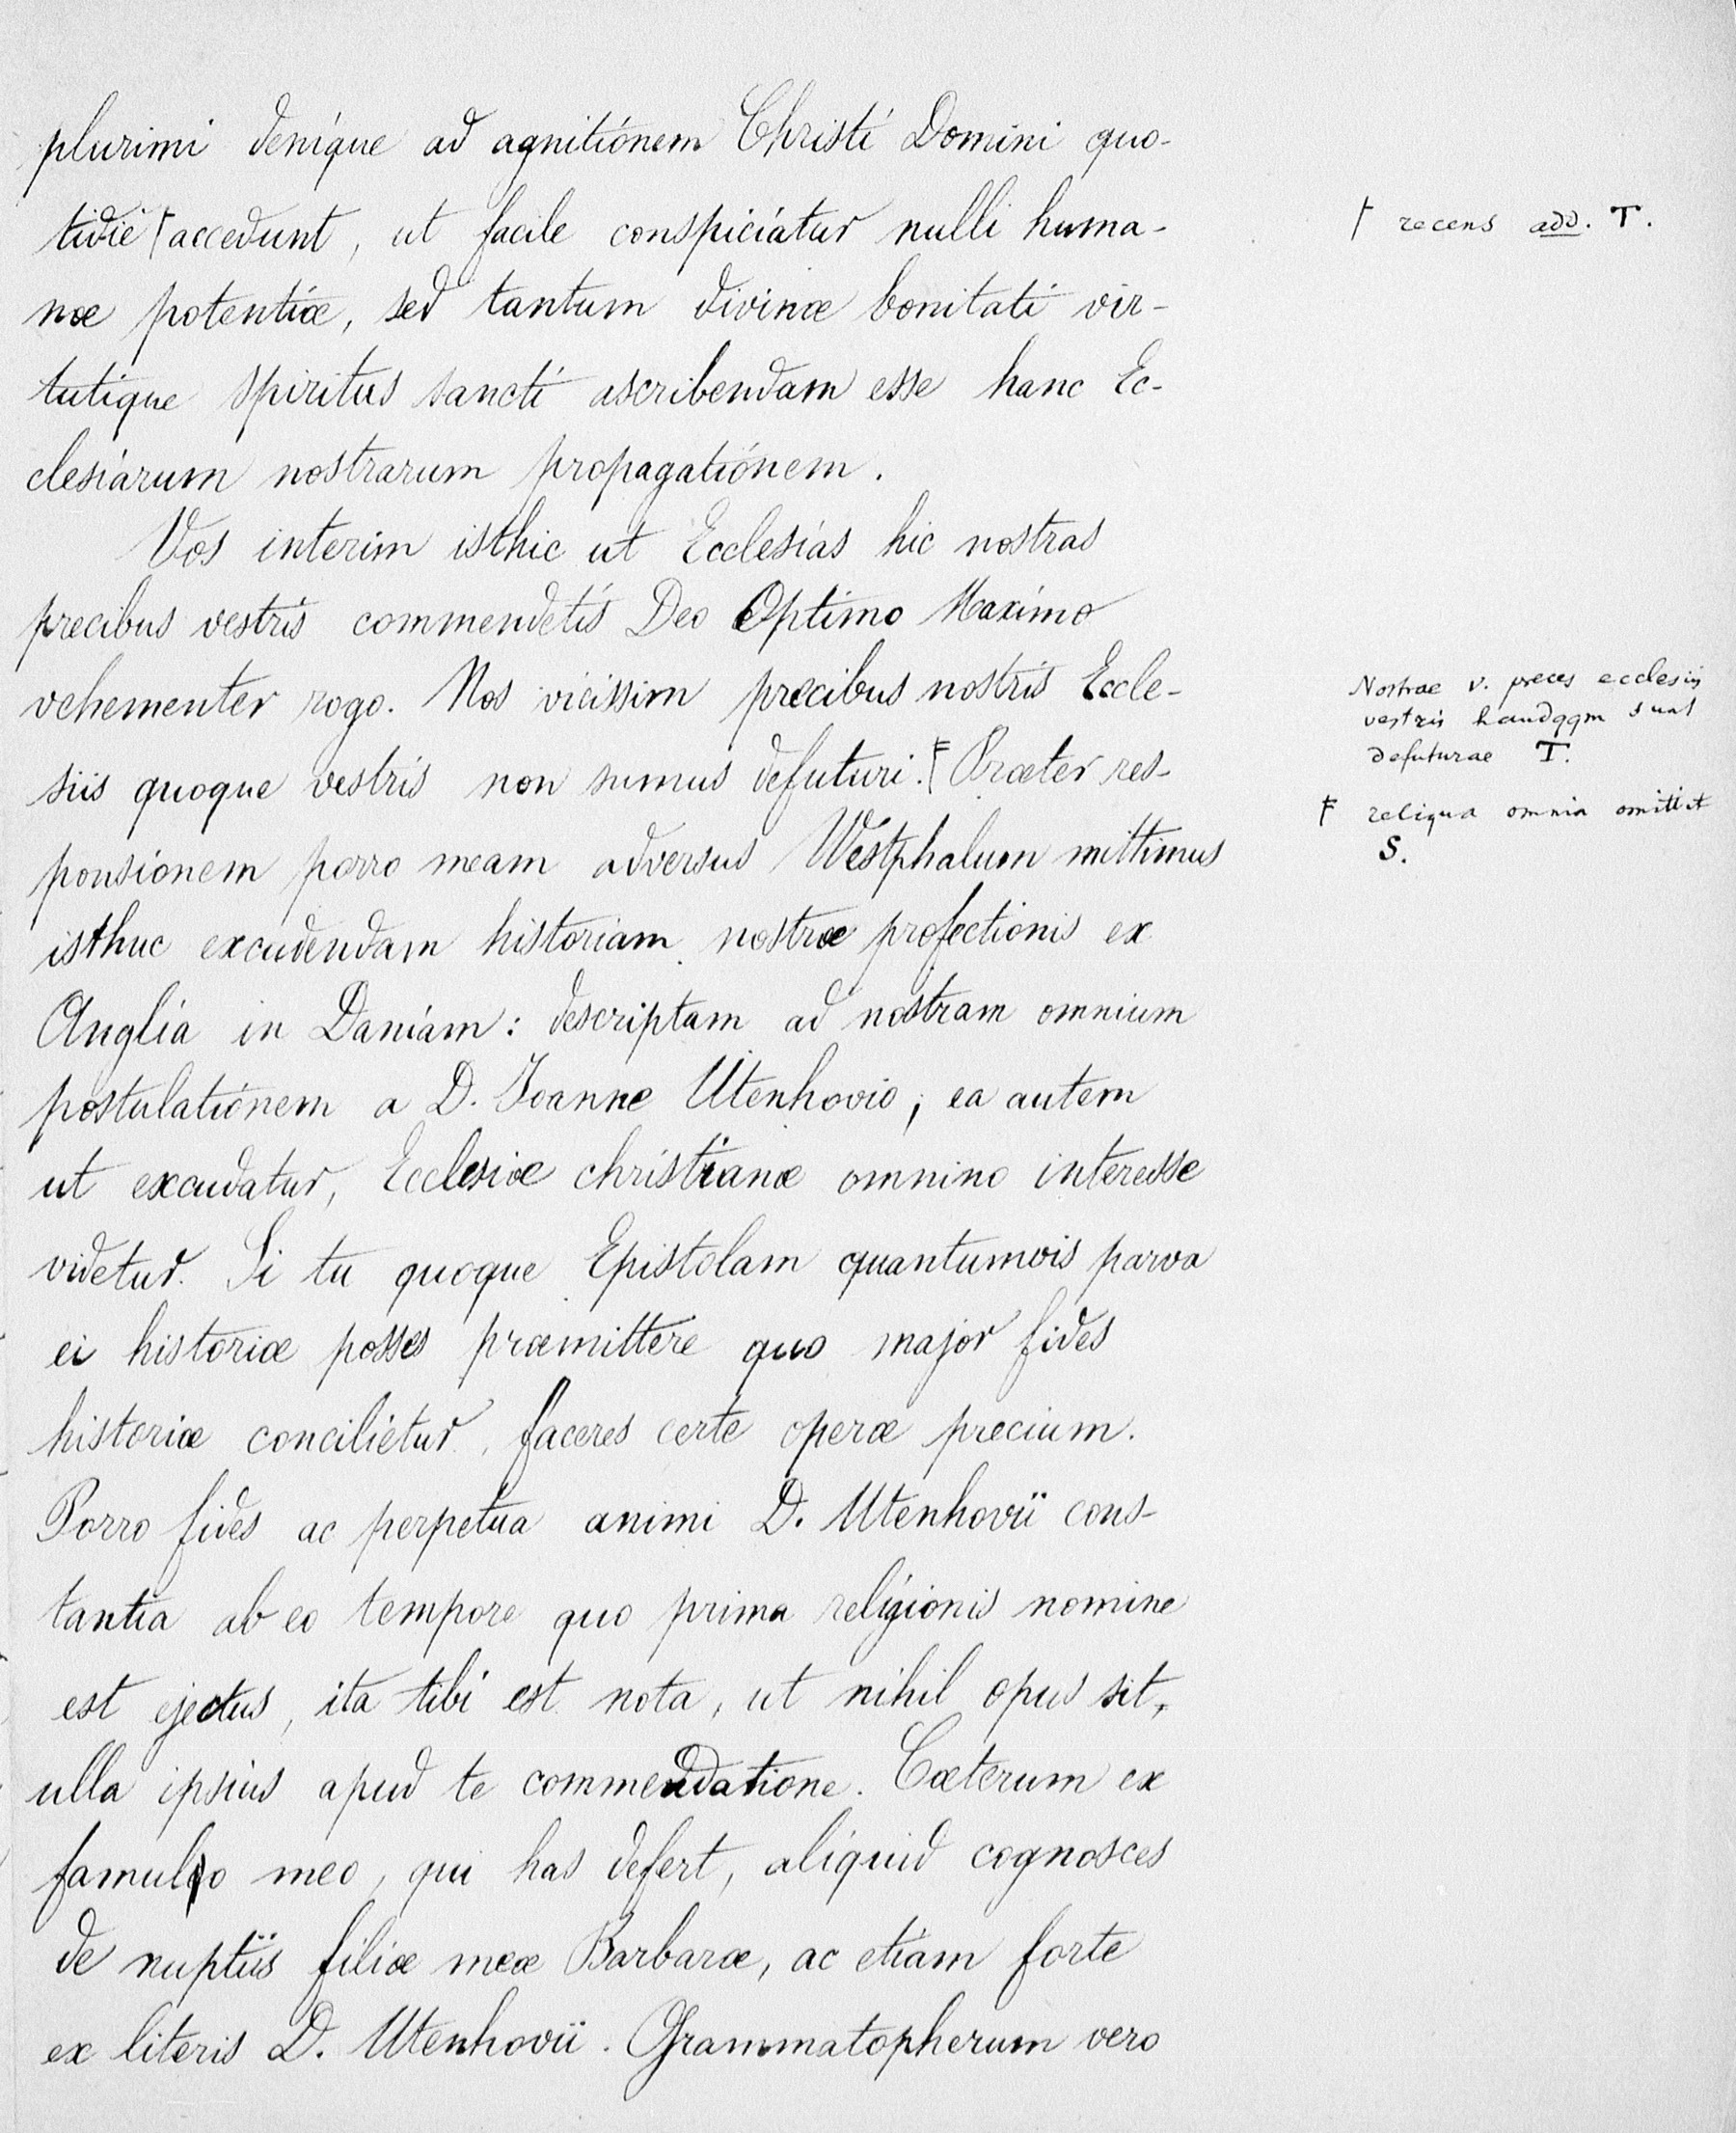 plurimi denique ad agnitionem Christi Domini quo-
tidie ꜒ accedunt, ut facile conspiciatur nulli huma-
næ potentiæ, sed tantum divinæ bonitati vir-
tutique Spiritus sancti ascribendam esse hanc Ec-
clesiarum nostrarum propagationem.
Vos interim isthic ut Ecclesias hic nostras
precibus vestris commendetis Deo Optimo Maximo
vehementer rogo. Nos vicissim precibus nostris Eccle-
siis quoque vestris non sumus defuturi. ꜒ Præter res-
ponsionem porro meam adversus Westphalum mittimus
isthuc excudendam historiam nostræ profectionis ex
Anglia in Daniam: descriptam ad nostram omnium
postulationem a D. Joanne Utenhovio; ea autem
ut excudatur, Ecclesiæ christianæ omnino interesse
videtur. Si tu quoque Epistolam quantumvis parva
ei historiæ posses præmittere quo major fides
historiæ concilietur, faceres certe operæ precium.
Porro fides ac perpetua animi D. Utenhovii cons-
tantia ab eo tempore quo prima religionis nomine
est ejectus, ita tibi est nota, ut nihil opus sit,
ulla ipsius apud te commendatione. Cæterum ex
famulo meo, qui has defert, aliquid cognosces
de nuptiis filiæ meæ Barbaræ, ac etiam forte
ex literis D. Utenhovii. Grammatopherum vero
꜒ recens add. T.
Nostrae v. preces ecclesiis
vestris haudqqm sunt
defuturae T.
F reliqua omnia omittit
S.